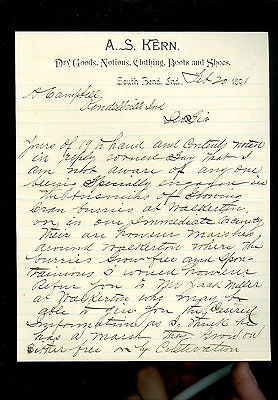 A. S. KERN.
Dry Goods, Notions, Clothing, Boots and Shoes.
South Bend, Ind., Feb 20 1891
A Campbell,
Kendallville Ind
Dr Sir
Yours of 19th hand and Contents noted
in reply would Say that I
am not aware of any one
being Specially engaged in
the business of Growing
Cran burries at Walkerton
or in our Immediate vicinity
Their are however Marshes
around Walkerton where the
burries Grow free and Spon-
tainious I would however
Refer you to Mr Jack Miller
at Walkerton who may be
able to Give you the desired
Information as I think he
has a marsh they Grow on
Either free or by Cultivation